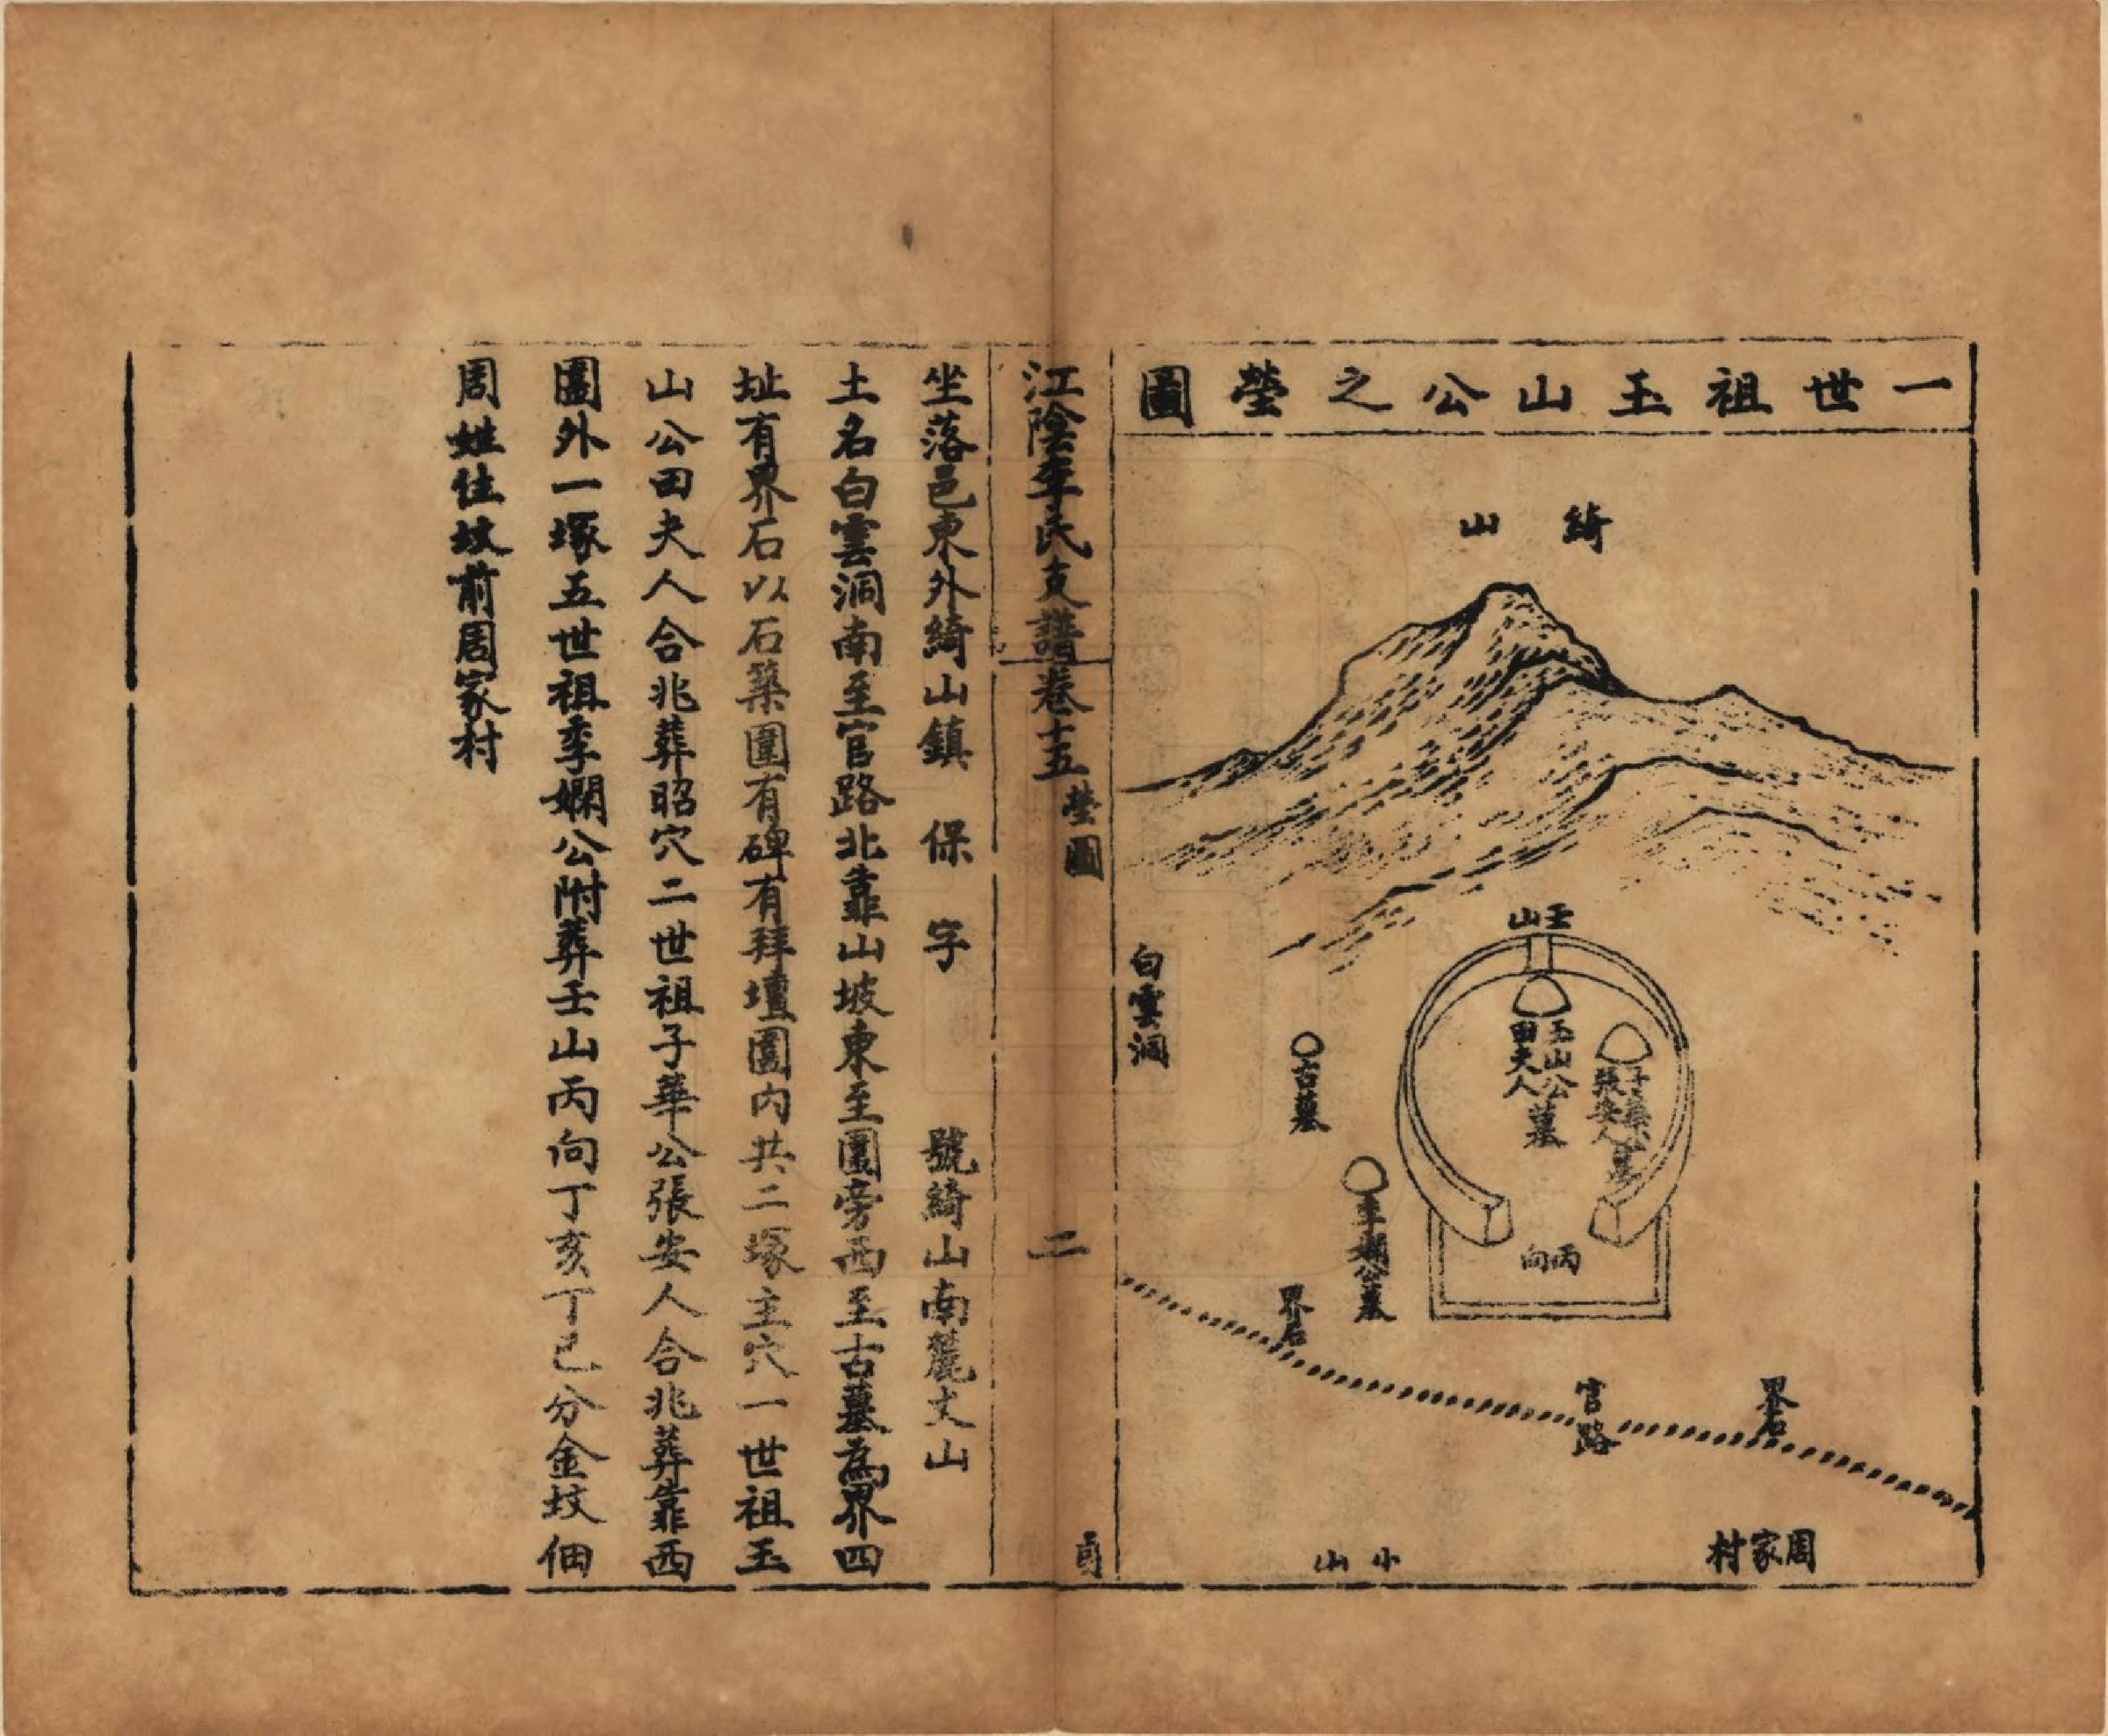 一世祖玉山公之塋圖
綺山
壬山
玉山公
田夫人
墓
子華公
張安人
墓
白雲洞
古墓
季嫻公墓
丙向
界石
官路
界石
周家村
小山
江陰李氏支譜卷十五
塋圖
二
坐落邑東外綺山鎮　保　字　　號綺山南麓丈山
土名白雲洞南至官路北靠山坡東至圍旁西至古墓為界四
址有界石以石築圍有碑有拜壇圍內共二塚主穴一世祖玉
山公田夫人合兆葬昭穴二世祖子華公張安人合兆葬靠西
圍外一塚五世祖季嫻公附葬壬山丙向丁亥丁巳分金坟佃
周姓住坟前周家村